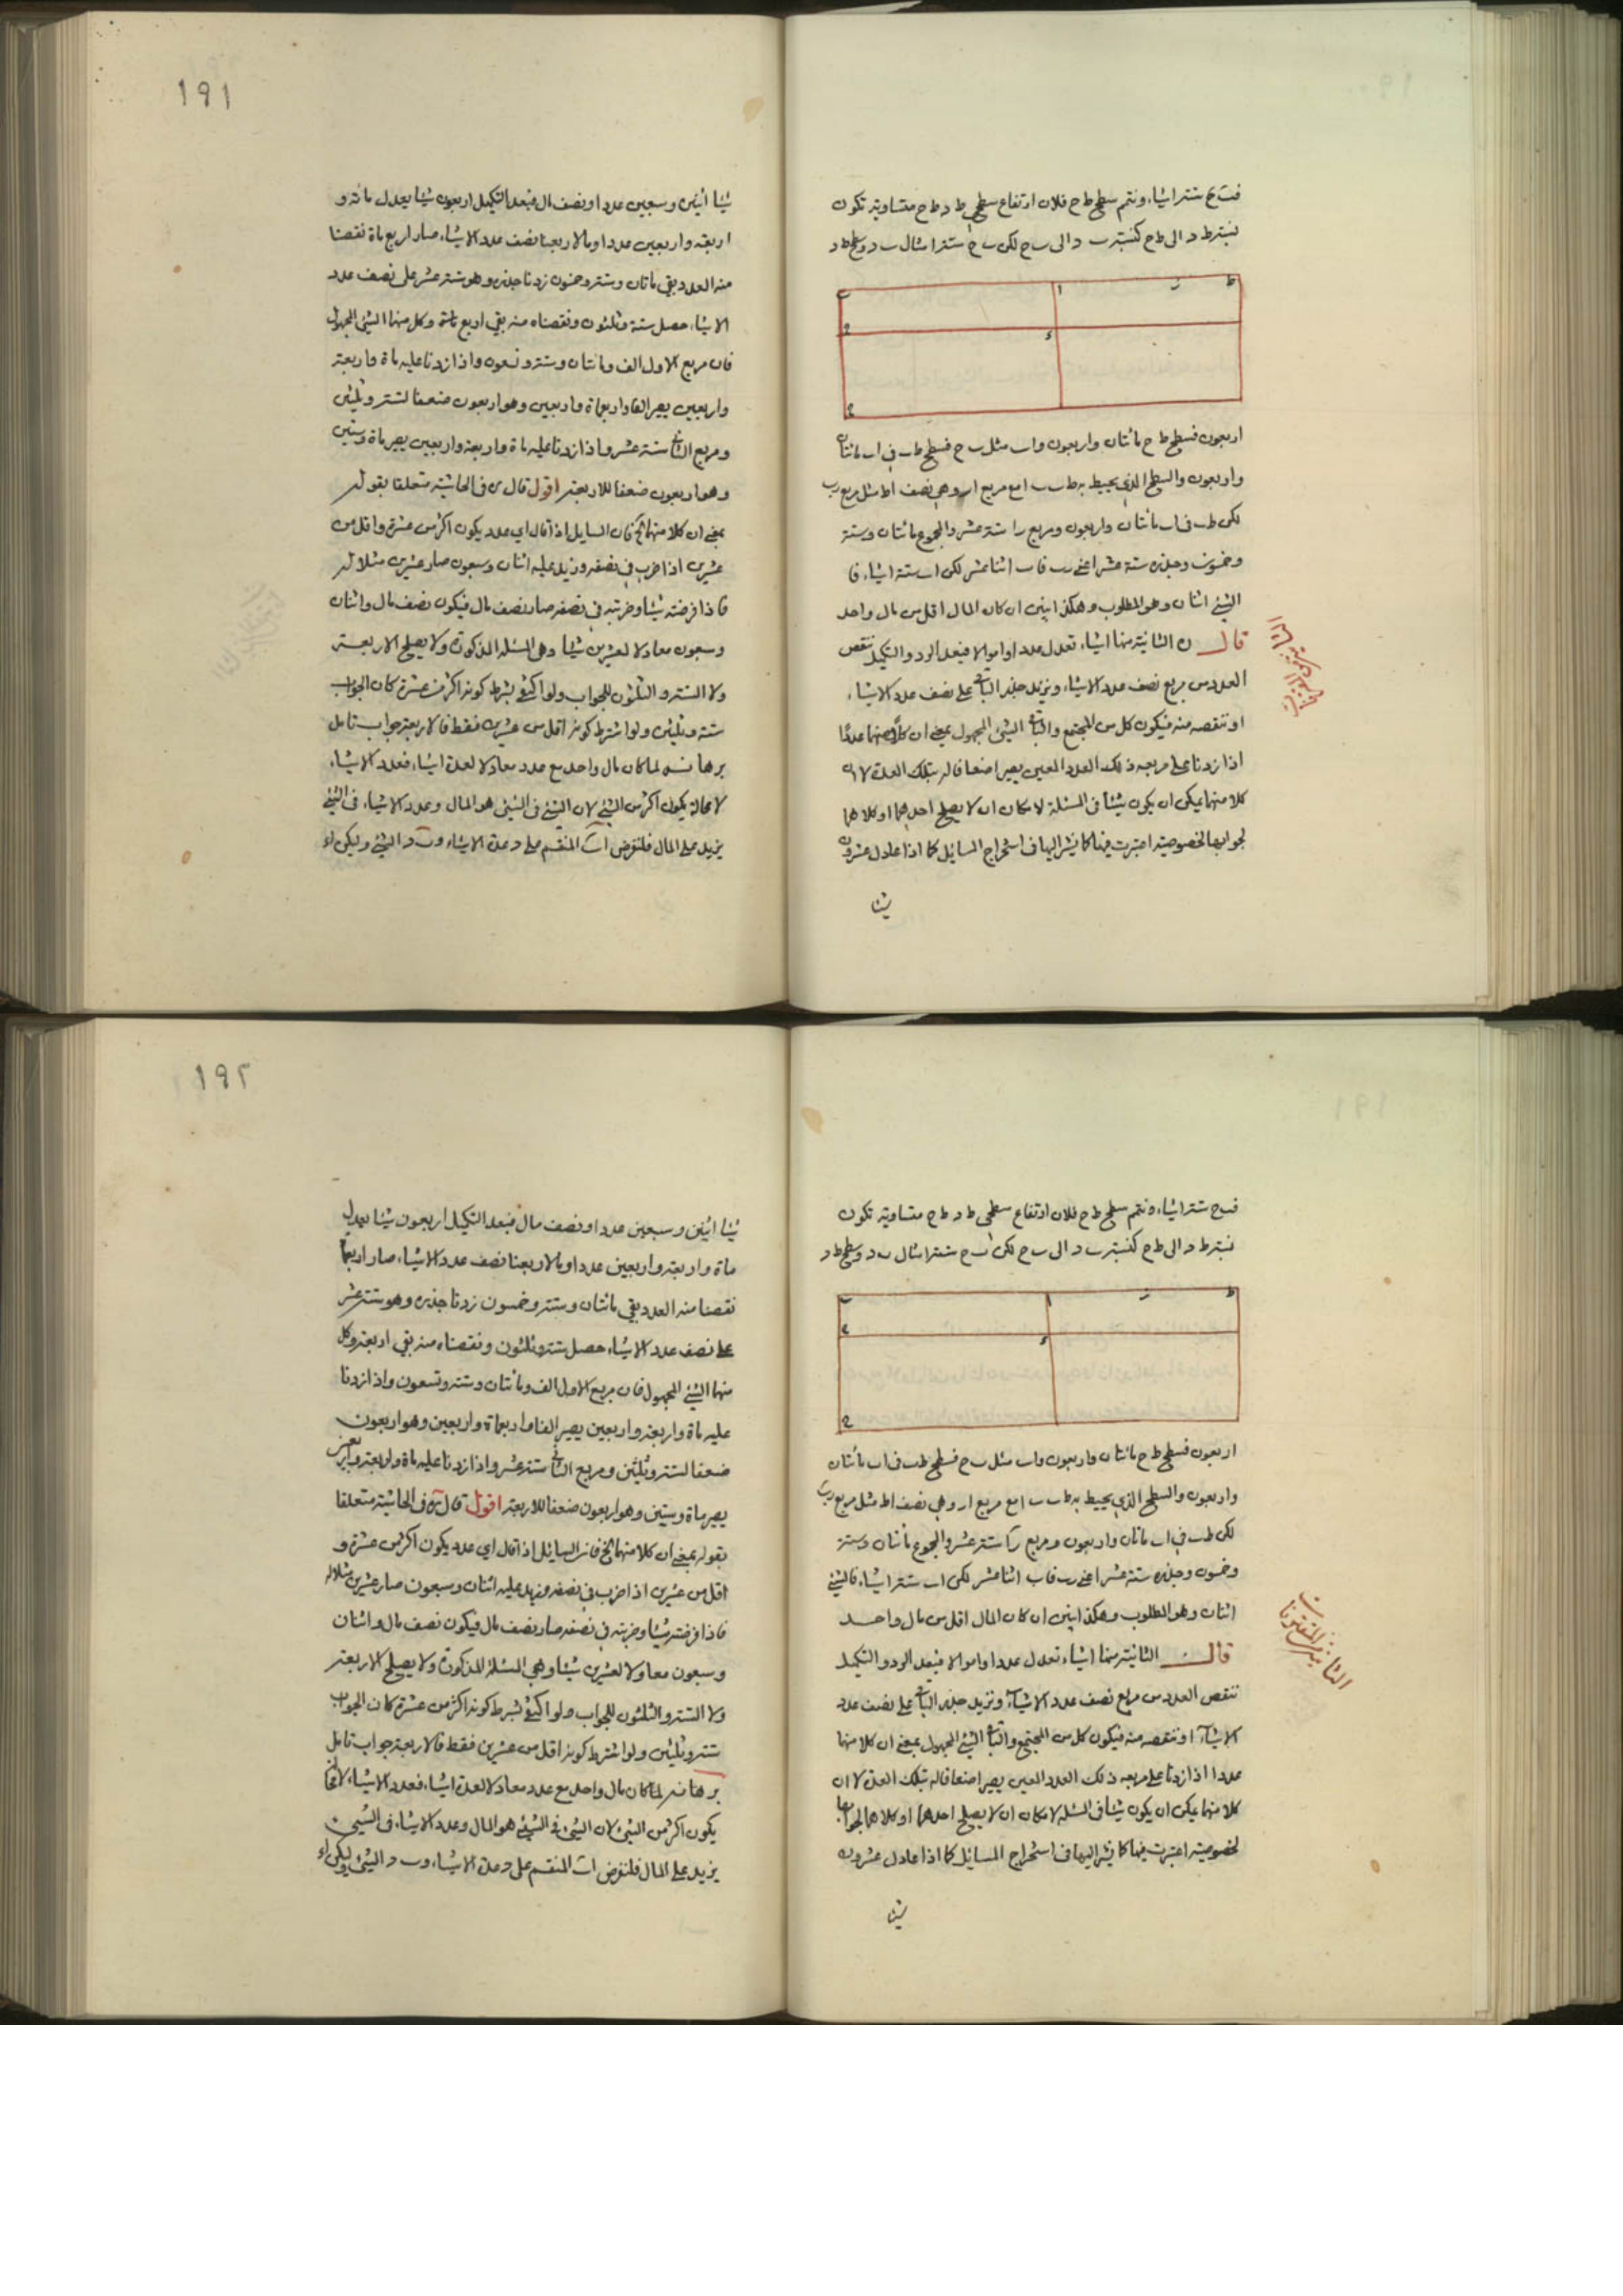 فب ح ستة اشياء ونتم سطح ط ح فلان ارتفاع سطحي ط د ط ح متساوية تكون
نسبة ط د الى ط ح كنسبة ب د الى ب ح لكن ب ح ستة امثال ب د وسطح ط د
ط ر ا ب
ء ه
ح
اربعون فسطح ط ح مائتان واربعون و اب مثل ب ح فسطح طب في اب مائتان
واربعون والسطح الذي يحيط به طب ب ا مع مربع ار وهي نصف اط مثل مربع رب
لكن طب في اب مائتان واربعون ومربع را ستة عشر والمجموع مائتان وستة
وخمسون وجذره ستة عشر اعني رب فاب اثنا عشر لكن اب ستة اشياء فا
الشئ اثنان وهو المطلوب وهكذا ينبين ان كان المال اقل من مال واحد
قال الثانية منها اشياء تعدل عددا واموالا فبعد الرد والتكميل تنقص
الثانية من المقترنات
العدد من مربع نصف عدد الاشياء ويزيد جذر الباقي على نصف عدد الاشياء
او تنقصه منه فيكون كل من المجتمع والباقي الشئ المجهول بمعنى ان كلا منهما عددا
اذا زدنا على مربعه ذلك العدد المعين يصير اضعافا له بتلك العدة لا ان
كلا منهما يمكن ان يكون شيئا في المسئلة لامكان ان لا يصلح احدهما او كلاهما
لجوابها لخصوصية اعتبرت فيها كما يشر اليها في استخراج المسايل كما اذا عادل عشرون
شيئا
١٩١
شيئا اثنين وسبعين عددا ونصف مال فبعد التكميل اربعون شيئا يعدل مائة و
اربعة واربعين عددا ومالا ربعنا نصف عدد الاشياء صار اربع ماة نقصنا
منه العدد بقي ماتان وستة وخمسون زدنا جذره وهو ستة عشر على نصف عدد
الاشياء حصل ستة وثلثون ونقصناه منه بقي اربعة وكل منهما الشئ المجهول
فان مربع الاول الف ومائتان وستة وتسعون واذا زدنا عليه ماة واربعة
واربعين يصير الفا واربعماة واربعين وهو اربعون ضعفا لستة وثلثين
ومربع الثاني ستة عشر واذا زدنا عليه ماة واربعة واربعين يصير ماة وستين
وهو اربعون ضعفا للاربعة اقول قال في الحاشية متعلقا بقوله
بمعنى ان كلا منهما الخ فان السايل اذا قال اي عدد يكون اكثر من عشرة واقل من
عشرين اذا ضرب في نصفه وزيد عليه اثنان وسبعون صار عشرين مثلا له
فاذا فرضته شيئا وضربته في نصفه صار نصف مال فيكون نصف مال واثنان
وسبعون معادلا لعشرين شيئا وهي المسئلة المذكورة ولا يصلح الاربعة
ولا الستة والثلثون للجواب ولو اكتفي بشرط كونه اكثر من عشرة كان الجواب
ستة وثلثين ولو اشترط كونه اقل من عشرين فقط فالاربعة جواب تامل
برهانه لما كان مال واحد مع عدد معادلا لعدة اشياء فعدد الاشياء
لا محالة يكون اكثر من الشئ لان الشئ في الشئ هو المال وعدد الاشياء في الشئ
يزيد على المال فلنفرض اب المنقسم على د عدة الاشياء و ب د الشئ وليكن اه
فب ح ستة اشياء ونتم سطح ط ح فلان ارتفاع سطحي ط د ط ح متساوية تكون
نسبة ط د الى ط ح كنسبة ب د الى ب ح لكن ب ح ستة امثال ب د وسطح ط د
ط ر ا ب
ء ه
ح
اربعون فسطح ط ح مائتان واربعون و اب مثل ب ح فسطح طب في اب مائتان
واربعون والسطح الذي يحيط به طب ب ا مع مربع ار وهي نصف اط مثل مربع رب
لكن طب في اب ماتان واربعون ومربع را ستة عشر والمجموع مائتان وستة
وخمسون وجذره ستة عشر اعني رب فاب اثنا عشر لكن اب ستة اشياء فالشئ
اثنان وهو المطلوب وهكذا ينبين ان كان المال اقل من مال واحد
قال الثانية منها اشياء تعدل عددا واموالا فبعد الرد والتكميل
الثانية من المقترنات
تنقص العدد من مربع نصف عدد الاشياء وتزيد جذر الباقي على نصف عدد
الاشياء او تنقصه منه فيكون كل من المجتمع والباقي الشئ المجهول بمعنى ان كلا منهما
عددا اذا زدنا على مربعه ذلك العدد المعين يصير اضعافا له بتلك العدة لا ان
كلا منهما يمكن ان يكون شيئا في المسئلة لامكان ان لا يصلح احدهما او كلاهما لجوابها
لخصوصية اعتبرت فيها كما يشر اليها في استخراج المسايل كما اذا عادل عشرون
شيئا
١٩٢
شيئا اثنين وسبعين عددا ونصف مال فبعد التكميل اربعون شيئا يعدل
ماة واربعة واربعين عددا ومالا ربعنا نصف عدد الاشياء صار اربعماة
نقصنا منه العدد بقي مائتان وستة وخمسون زدنا جذره وهو ستة عشر
على نصف عدد الاشياء حصل ستة وثلثون ونقصناه منه بقي اربعة وكل
منهما الشئ المجهول فان مربع الاول الف ومائتان وستة وتسعون واذا زدنا
عليه ماة واربعة واربعين يصير الفا واربعماة واربعين وهو اربعون
ضعفا لستة وثلثين ومربع الثاني ستة عشر واذا زدنا عليه ماة واربعة واربعين
يصير ماة وستين وهو اربعون ضعفا للاربعة اقول قال في الحاشية متعلقا
بقوله بمعنى ان كلا منهما الخ فان السايل اذا قال اي عدد يكون اكثر من عشرة و
اقل من عشرين اذا ضرب في نصفه وزيد عليه اثنان وسبعون صار عشرين مثلا له
فاذا فرضته شيئا وضربته في نصفه صار نصف مال فيكون نصف مال واثنان
وسبعون معادلا لعشرين شيئا وهي المسئلة المذكورة ولا يصلح الاربعة
ولا الستة والثلثون للجواب ولو اكتفي بشرط كونه اكثر من عشرة كان الجواب
ستة وثلثين ولو اشترط كونه اقل من عشرين فقط فالاربعة جواب تامل
برهانه لما كان مال واحد مع عدد معادلا لعدة اشياء فعدد الاشياء لا محالة
يكون اكثر من الشئ لان الشئ في الشئ هو المال وعدد الاشياء في الشئ
يزيد على المال فلنفرض اب المنقسم على د عدة الاشياء و ب د الشئ وليكن اه